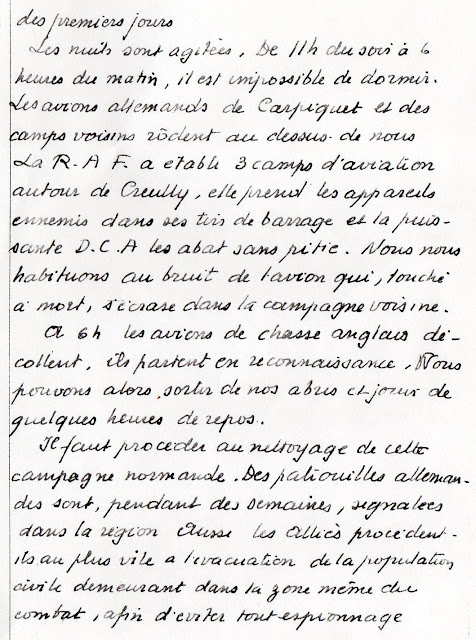 des premiers jours
Les nuits sont agitées, De 11h du soir à 6
heures du matin, il est impossible de dormir.
Les avions allemands de Carpiquet et des
camps voisins rôdent au dessus de nous
La R.A.F. a etabli 3 camps d'aviation
autour de Creully, elle prend les appareils
ennemis dans ses tirs de barrage et la puis-
sante D.C.A les abat sans pitie. Nous nous
habituons au bruit de l'avion qui, touché
à mort, s'écrase dans la campagne voisine.
A 6h les avions de chasse anglais dé-
collent, ils partent en reconnaissance. Nous
pouvons alors sortir de nos abris et jouir de
quelques heures de repos.
Il faut procéder au nettoyage de cette
campagne normande. Des patrouilles alleman-
des sont, pendant des semaines, signalées
dans la région Aussi les Alliés procèdent-
ils au plus vite a l'evacuation de la population
civile demeurant dans la zone même du
combat, afin d'éviter tout espionnage